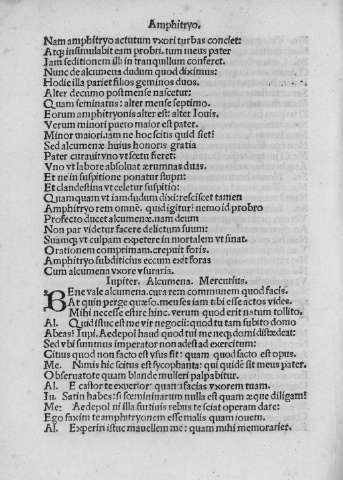 Amphitryo.
Nam amphitryo actutum vxori turbas conciet:
Atq; insimulabit eam probri. tum meus pater
Iam seditionem illi in tranquillum conferet.
Nunc de alcumena dudum quod diximus:
Hodie illa pariet filios geminos duos.
Alter decumo post mense nascetur:
Quam seminatus: alter mense septimo.
Eorum amphitryonis alter est: alter Iouis.
Verum minori puero maior est pater.
Minor maiori. iam ne hoc scitis quid siet?
Sed alcumenæ huius honoris gratia
Pater curauit vno vt fœtu fieret:
Vno vt labore absoluat ærumnas duas.
Et ne in suspitione ponatur stupri:
Et clandestina vt celetur suspitio:
Quamquam vt iandudum dixi: resciscet tamen
Amphitryo rem omnē. quid igitur? nemo id probro
Profecto ducet alcumenæ. nam deum
Non par videtur facere delictum suum:
Suamq; vt culpam expetere in mortalem vt sinat.
Orationem comprimam. crepuit foris.
Amphitryo subditicius eccum exit foras
Cum alcumena vxore vsuraria.
Iupiter. Alcumena. Mercurius.
BEne vale alcumena. cura rem communem quod facis.
At qui n perge quæso. menses iam tibi esse actos vides.
Mihi necesse est ire hinc. verum quod erit natum tollito.
Al. Quid istuc est me vir negocii: quod tu tam subito domo
Abeas? Iupi. Aedepol haud quod tui me neq; domi distædeat:
Sed vbi summus imperator non adest ad exercitum:
Citius quod non facto est vsus fit: quam quod facto est opus.
Me. Nimis hic scitus est sycophanta: qui quidē sit meus pater.
Obseruatote quam blande mulieri palpabitur.
Al. Ecastor te experior quanti facias vxorem tuam.
Iu. Satin habes: si fœmininarum nulla est quam æque diligam?
Me: Aedepol ni illa furtiuis rebus te sciat operam dare:
Ego faxim te amphitryonem esse malis quam iouem.
Al. Experiri istuc mauellem me: quam mihi memorariet.